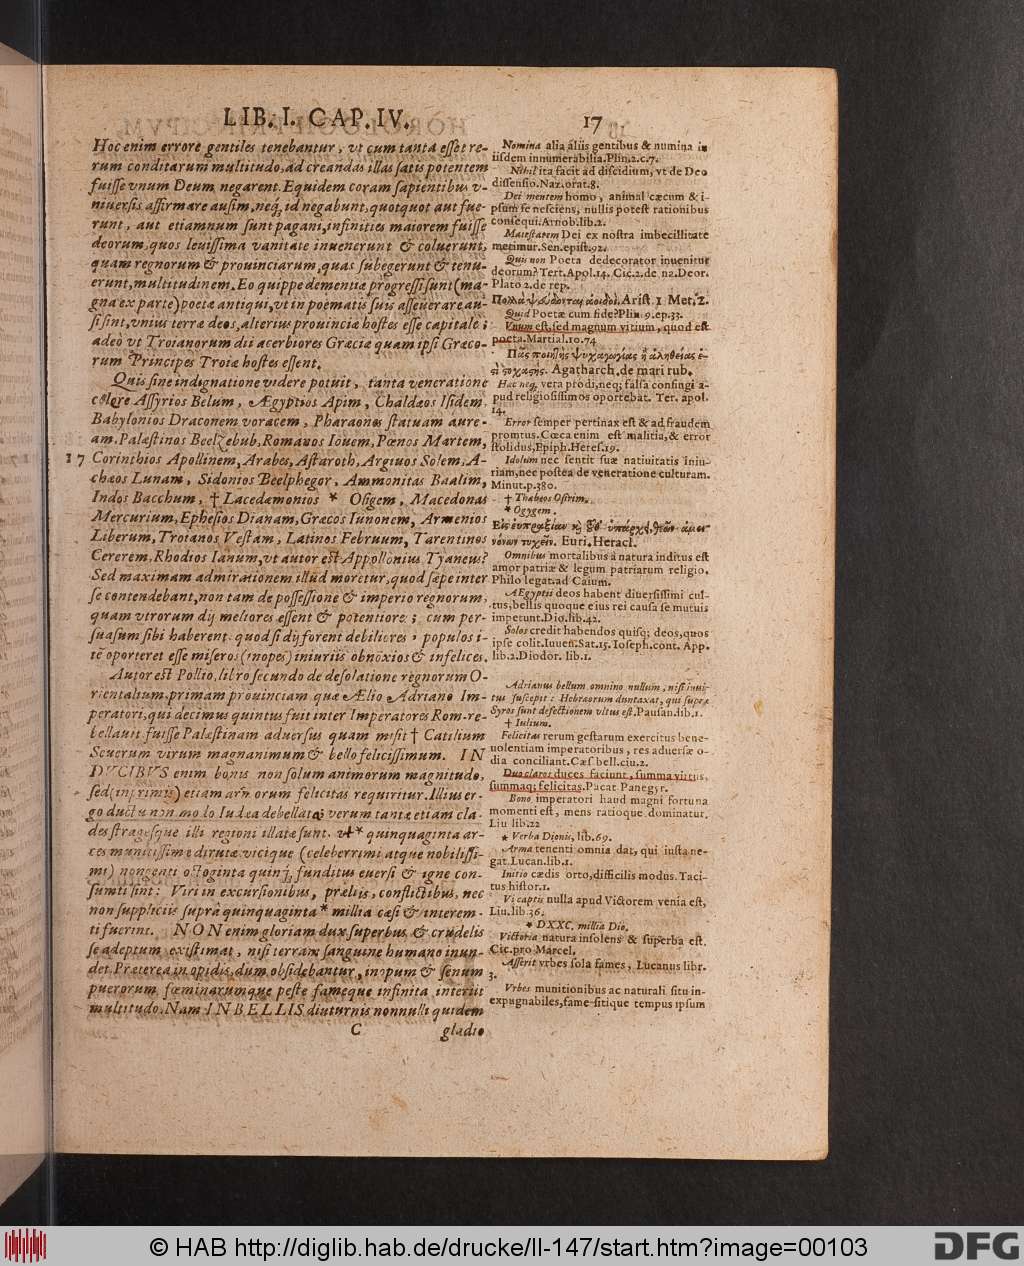 LIB. I. CAP. IV. 17
Hoc enim errore gentiles tenebantur, vt cum tanta esset re-
rum conditarum multitudo, ad creandas illas satis potentem
fuisse vnum Deum negarent. Equidem coram sapientibus v-
niuersis affirmare ausim, neq; id negabunt, quotquot aut fue-
runt, aut etiamnum sunt pagani, infinities maiorem fuisse
deorum, quos leuissima vanitate inuenerunt & coluerunt,
quam regnorum & prouinciarum, quas subegerunt & tenu-
erunt, multitudinem. Eo quippe dementiæ progressi sunt (ma-
gna ex parte) poetæ antiqui, vt in poëmatis suis asseuerare au-
si sint, vnius terræ deos, alterius prouinciæ hostes esse capitale;
adeò vt Troianorum dii acerbiores Græciæ quam ipsi Græco-
rum Principes Troiæ hostes essent.
Quis sine indignatione videre potuit, tanta veneratione
colere Assyrios Belum, Ægyptios Apim, Chaldæos Isidem,
Babylonios Draconem voracem, Pharaones statuam aure-
am, Palæstinos Beelzebub, Romanos Iouem, Pœnos Martem,
17 Corinthios Apollinem, Arabes, Astaroth, Argiuos Solem, A-
chæos Lunam, Sidonios Beelphegor, Ammonitas Baalim,
Indos Bacchum, † Lacedæmonios * Osigem, Macedonas
Mercurium, Ephesios Dianam, Græcos Iunonem, Armenios
Liberum, Troianos Vestam, Latinos Februum, Tarentinos
Cererem, Rhodios Ianum, vt autor est Appollonius Tyaneus?
Sed maximam admirationem illud moretur, quod sæpe inter
se contendebant, non tam de possessione & imperio regnorum,
quam vtrorum dij meliores essent & potentiores; cum per-
suasum sibi haberent quod si dij forent debiliores, populos i-
tē oporteret esse miseros (inopes) iniuriis obnoxios & infelices.
Autor est Pollio, libro secundo de desolatione regnorum O-
rientalium, primam prouinciam quæ Ælio Adriano Im-
peratori, qui decimus quintus fuit inter Imperatores Rom. re-
bellauit fuisse Palæstinam aduersus quam misit † Catilium
Seuerum virum magnanimum & bello felicissimum. IN
DVCIBVS enim bonis non solum animorum magnitudo,
sed (inprimis) etiam armorum felicitas requiritur. Illius er-
go ductu non modo Iudæa debellata; verum tantæ etiam cla-
des stragesque illi regioni illatæ sunt. vt * quinquaginta ar-
ces munitissimæ dirutæ vicique (celeberrimi atque nobilissi-
mi) nongenti octoginta quinq; funditus euersi & igne con-
sumti sint: Viri in excursionibus, præliis, conflictibus, nec
non suppliciis supra quinquaginta * millia cæsi & interem-
ti fuerint. NON enim gloriam dux superbus & crudelis
se adeptum existimat, nisi terram sanguine humano inun-
det. Præterea in opidis, dum obsidebantur, inopum & senum
puerorum fœminarumque peste fameque infinita interiit
multitudo. Nam IN BELLIS diuturnis nonnulli quidem
C gladio
Nomina alia aliis gentibus & numina in
iisdem innumerabilia. Plin. 2. c. 7.
Nihil ita facit ad discidium, vt de Deo
dissensio. Naz. orat. 8.
Dei mentem homo, animal cæcum & i-
psum se nesciens, nullis potest rationibus
consequi. Arnob. lib. 2.
Maiestatem Dei ex nostra imbecillitate
metimur. Sen. epist. 92.
Quis non Poeta dedecorator inuenitur
deorum? Tert. Apol. 14. Cic. 2. de nz. Deor.
Plato 2. de rep.
Πολλὰ ψεύδονται ἀοιδοί. Arist. 1 Met. 2.
Quid Poetæ cum fide? Plin. 9. ep. 33.
Vnum est, sed magnum vitium, quod est
poeta. Martial. 10. 74
Πᾶς ποιητὴς ψυχαγωγίας ἢ ἀληθείας ἐ-
ςὶ ςοχαςής. Agatharch. de mari rub.
Hac neq, vera prodi, neq; falsa confingi a-
pud religiosissimos oportebat. Ter. apol.
14.
Error semper pertinax est & ad fraudem
promtus. Cœca enim est malitia, & error
stolidus, Epiph. Heres. 19.
Idolum nec sentit suæ natiuitatis iniu-
riam, nec postea de veneratione culturam.
Minut. p. 380.
† Thabeos Osirim.
* Ogygem.
Euri. Heracl.
Omnibus mortalibus à natura inditus est
amor patriæ & legum patriarum religio.
Philo legat. ad Caium.
AEgyptii deos habent diuersissimi cul-
tus, bellis quoque eius rei causa se mutuis
impetunt. Dio. lib. 42.
Solos credit habendos quisq; deos, quos
ipse colit. Iuuen. Sat. 15. Ioseph. cont. App.
lib. 2. Diodor. lib. 1.
Adrianus bellum omnino nullum, nisi inui-
tus suscepit: Hebræorum duntaxat, qui supra
Syros sunt defectionem vltus est. Pausan. lib. 1.
† Iulium.
Felicitas rerum gestarum exercitus bene-
uolentiam imperatoribus, res aduersæ o-
dia conciliant. Cæs bell. ciu. 2.
Duo claros duces faciunt, summa virtus,
summaq; felicitas. Pacat Panegyr.
Bono imperatori haud magni fortuna
momenti est, mens ratioque dominatur.
Liu lib. 22
* Verba Dionis, lib. 69.
Arma tenenti omnia dat, qui iusta ne-
gat. Lucan. lib. 1.
Initio cædis orto, difficilis modus. Taci-
tus histor. 1.
Vi captis nulla apud Victorem venia est,
Liu. lib. 36.
* DXXC. millia Dio.
Victoria natura insolens & superba est.
Cic. pro Marcel.
Asserit vrbes sola fames, Lucanus libr.
3.
Vrbes munitionibus ac naturali situ in-
expugnabiles, fame sitique tempus ipsum
© HAB http://diglib.hab.de/drucke/li-147/start.htm?image=00103
DFG